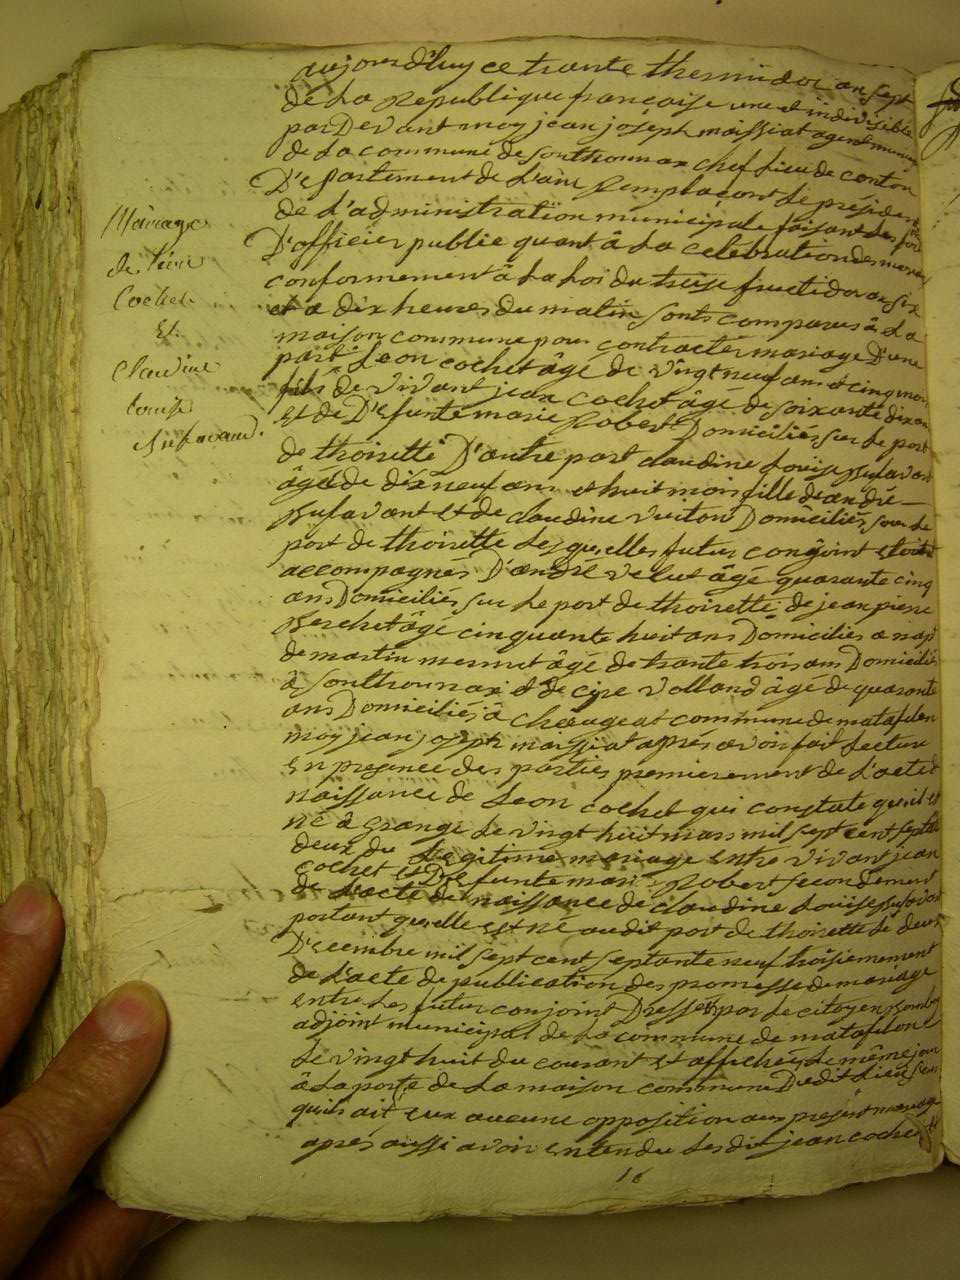 Mariage
de Léon
Cochet
Et
Claudine
Louise
aujourd'huy ce trante thermidor an sept
de La Republique francaise une et indivisible
par Devant moy jean joseph maissiat agent munic
de La commune de Sonthonnax chef Lieu de canton
Departement de L'ain Remplacant Le président
de L'administration municipale faisant les fon
D'officier public quant â La celebration des mariag
conformement â La Loi du treise fructidor an six
et a dix heures du matin sont comparus â La
maison commune pour contracter mariage D'une
part Leon cochet âgé de vingt neuf ans et cinq mois
fils de vivant jean cochet âgé de soixante dix an
et de Defunte marie Robert Domiciliés sur Le port
de thoirette D'autre part claudine Louise Bufavant
âgée de dix neuf ans et huit mois fille de andré
Bufavant et de claudine Domiciliés sur Le
port de thoirette Lesquelles futur conjoint etoit
accompagnés D'andre velut âgé quarante cinq
ans Domiciliés sur Le port de thoirette de jean pierre
Berchet âgé cinquante huit ans Domiciliés a
de martin mermet âgé de trante trois ans Domicilié
â Sonthonnax et de Cire Volland âgé de quarante
ans Domiciliés â commune de matafelon
moy jean joseph maissiat aprés avoir fait Lecture
en presance des parties premierement de L'acte d
naissance de Leon cochet qui constate qu'il est
né â grange Le vingt huit mars mil sept cent septte
deux du Legitime mariage entre vivant jean
cochet et Defunte marie Robert secondement
de L'acte de naissance de claudine Louise Bufavant
portant qu'elle est né audit port de thoirette Le deux
Decembre mil sept cent septante neuf troisiemement
de L'acte de publication des promesse de mariage
entre Les futur conjoint Dressé par Le citoyen
adjoint municipal de La commune de matafelon
Le vingt huit du courant et affichés Le même jour
â La porte de La maison commune Dudit Lieu sans
quils ait eux aucune opposition aux present mariage
aprés aussi avoir entendu Lesdit jean cochet
16